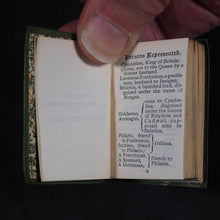 Persons Represented.
Cymbeline, King of Britain.
Cloten, son to the Queen by a
former husband.
Leonatus Posthumus, a gentleman,
husband to Imogen.
Belarius, a banished lord, disguised
under the name of Morgan.
Guiderius,
Arviragus,
sons to Cymbeline,
disguised
under the names
of Polydore and
Cadwal, supposed
sons to
Belarius.
Philario, friend
to Posthumus,
Iachimo, friend
to Philario,
Italians.
A Frenchman
A Spaniard,
A Dutchman,
friends to
Philario.